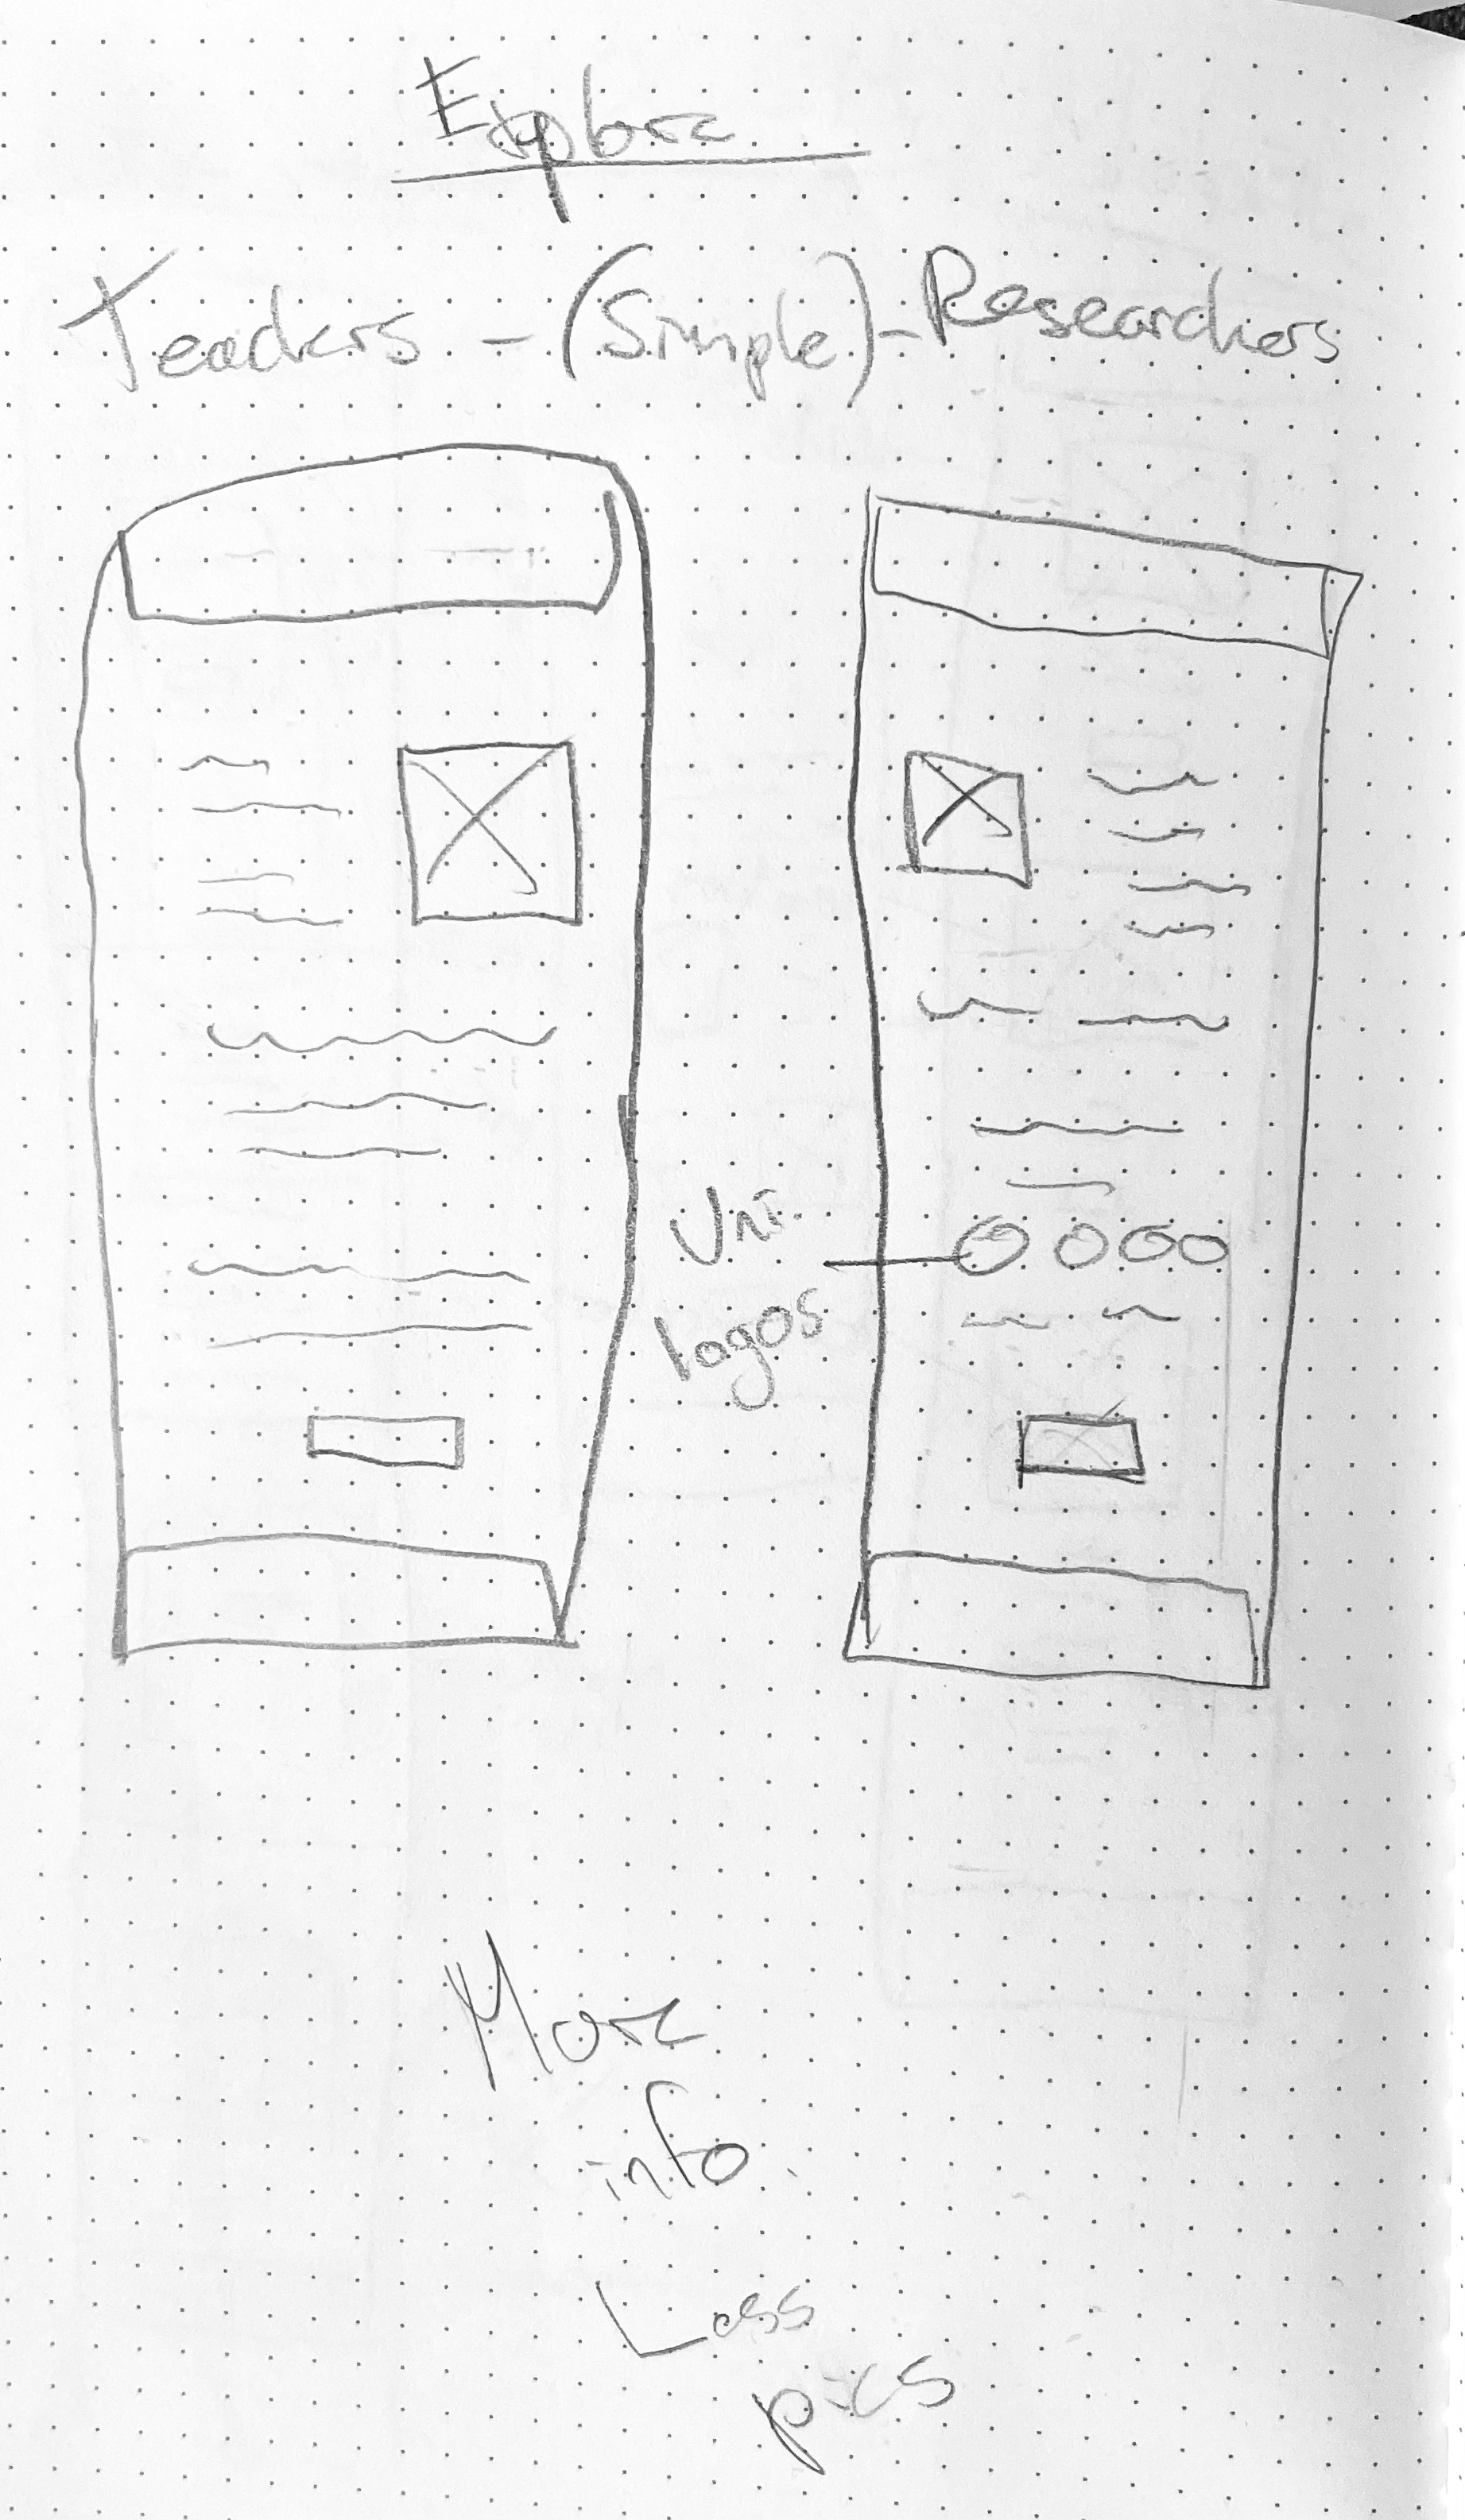 Explore
Teachers - (Simple) - Researchers
Uni.
logos
More
info
Less
pics